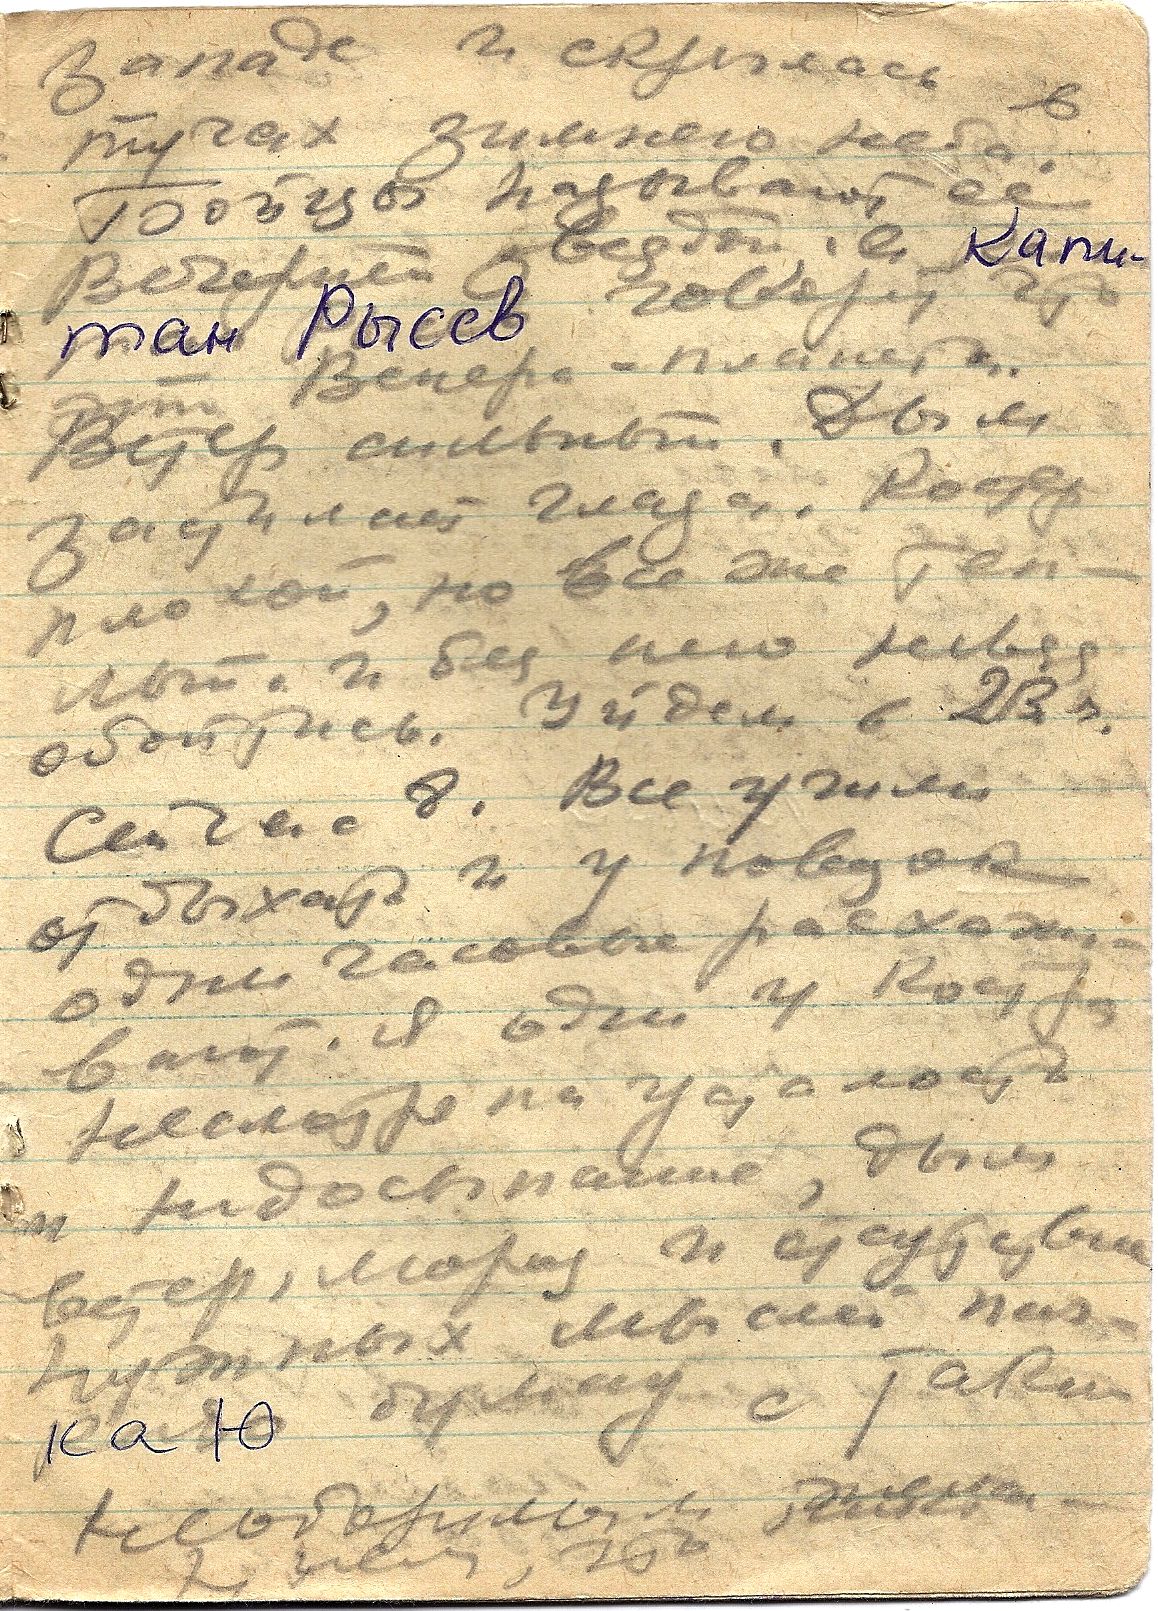 западе и скрылась в
тучах зимнего неба.
Бойцы называют её
Вечерней звездой, а Капи-
тан Рысев говорит что
это Венера - планета.
Ветер сильный. Дым
застилает глаза. Костер
плохой, но все же теп-
лый. и без него нельзя
обойтись. Уйдем в 23 ч.
Сейчас 8. Все ушли
отдыхать и у повозок
одни часовые расхажи-
вают. Я один у костра
несмотря на усталость
и недосыпание, дым
ветер, мороз и отсутствие
нужных мыслей пач-
каю бумагу с таки
необоримым
что